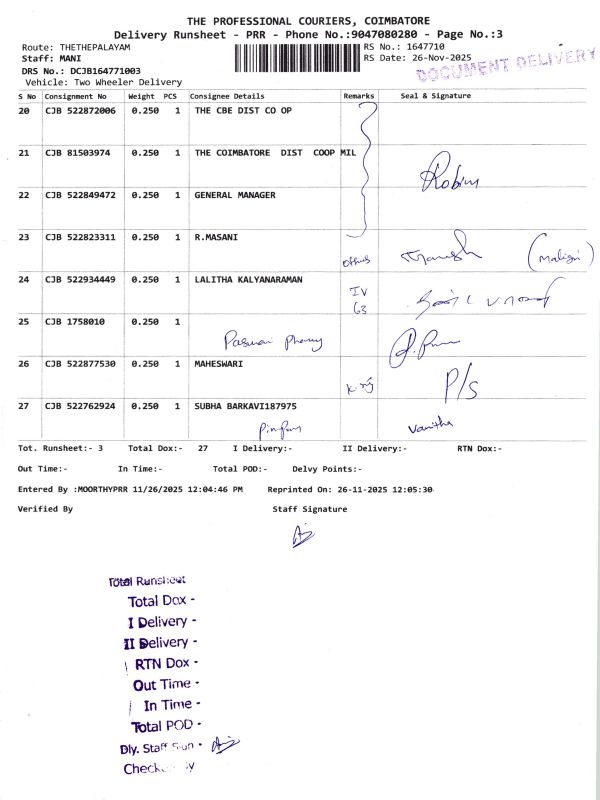 THE PROFESSIONAL COURIERS, COIMBATORE
Delivery Runsheet - PRR - Phone No.:9047080280 - Page No.:3
Route: THETHEPALAYAM RS No.: 1647710
Staff: MANI RS Date: 26-Nov-2025
DOCUMENT DELIVERY
DRS No.: DCJB164771003
Vehicle: Two Wheeler Delivery
S No Consignment No Weight PCS Consignee Details Remarks Seal & Signature
20 CJB 522872006 0.250 1 THE CBE DIST CO OP
21 CJB 81503974 0.250 1 THE COIMBATORE DIST COOP MIL
Robin
22 CJB 522849472 0.250 1 GENERAL MANAGER
23 CJB 522823311 0.250 1 R.MASANI
24 CJB 522934449 0.250 1 LALITHA KALYANARAMAN
IV
63
25 CJB 1758010 0.250 1
26 CJB 522877530 0.250 1 MAHESWARI
P/S
27 CJB 522762924 0.250 1 SUBHA BARKAVI187975
Vanitha
Tot. Runsheet:- 3 Total Dox:- 27 I Delivery:- II Delivery:- RTN Dox:-
Out Time:- In Time:- Total POD:- Delvy Points:-
Entered By :MOORTHYPRR 11/26/2025 12:04:46 PM Reprinted On: 26-11-2025 12:05:30
Verified By Staff Signature
Total Runsheet
Total Dox -
I Delivery -
II Delivery -
RTN Dox -
Out Time -
In Time -
Total POD -
Dly. Staff Sign -